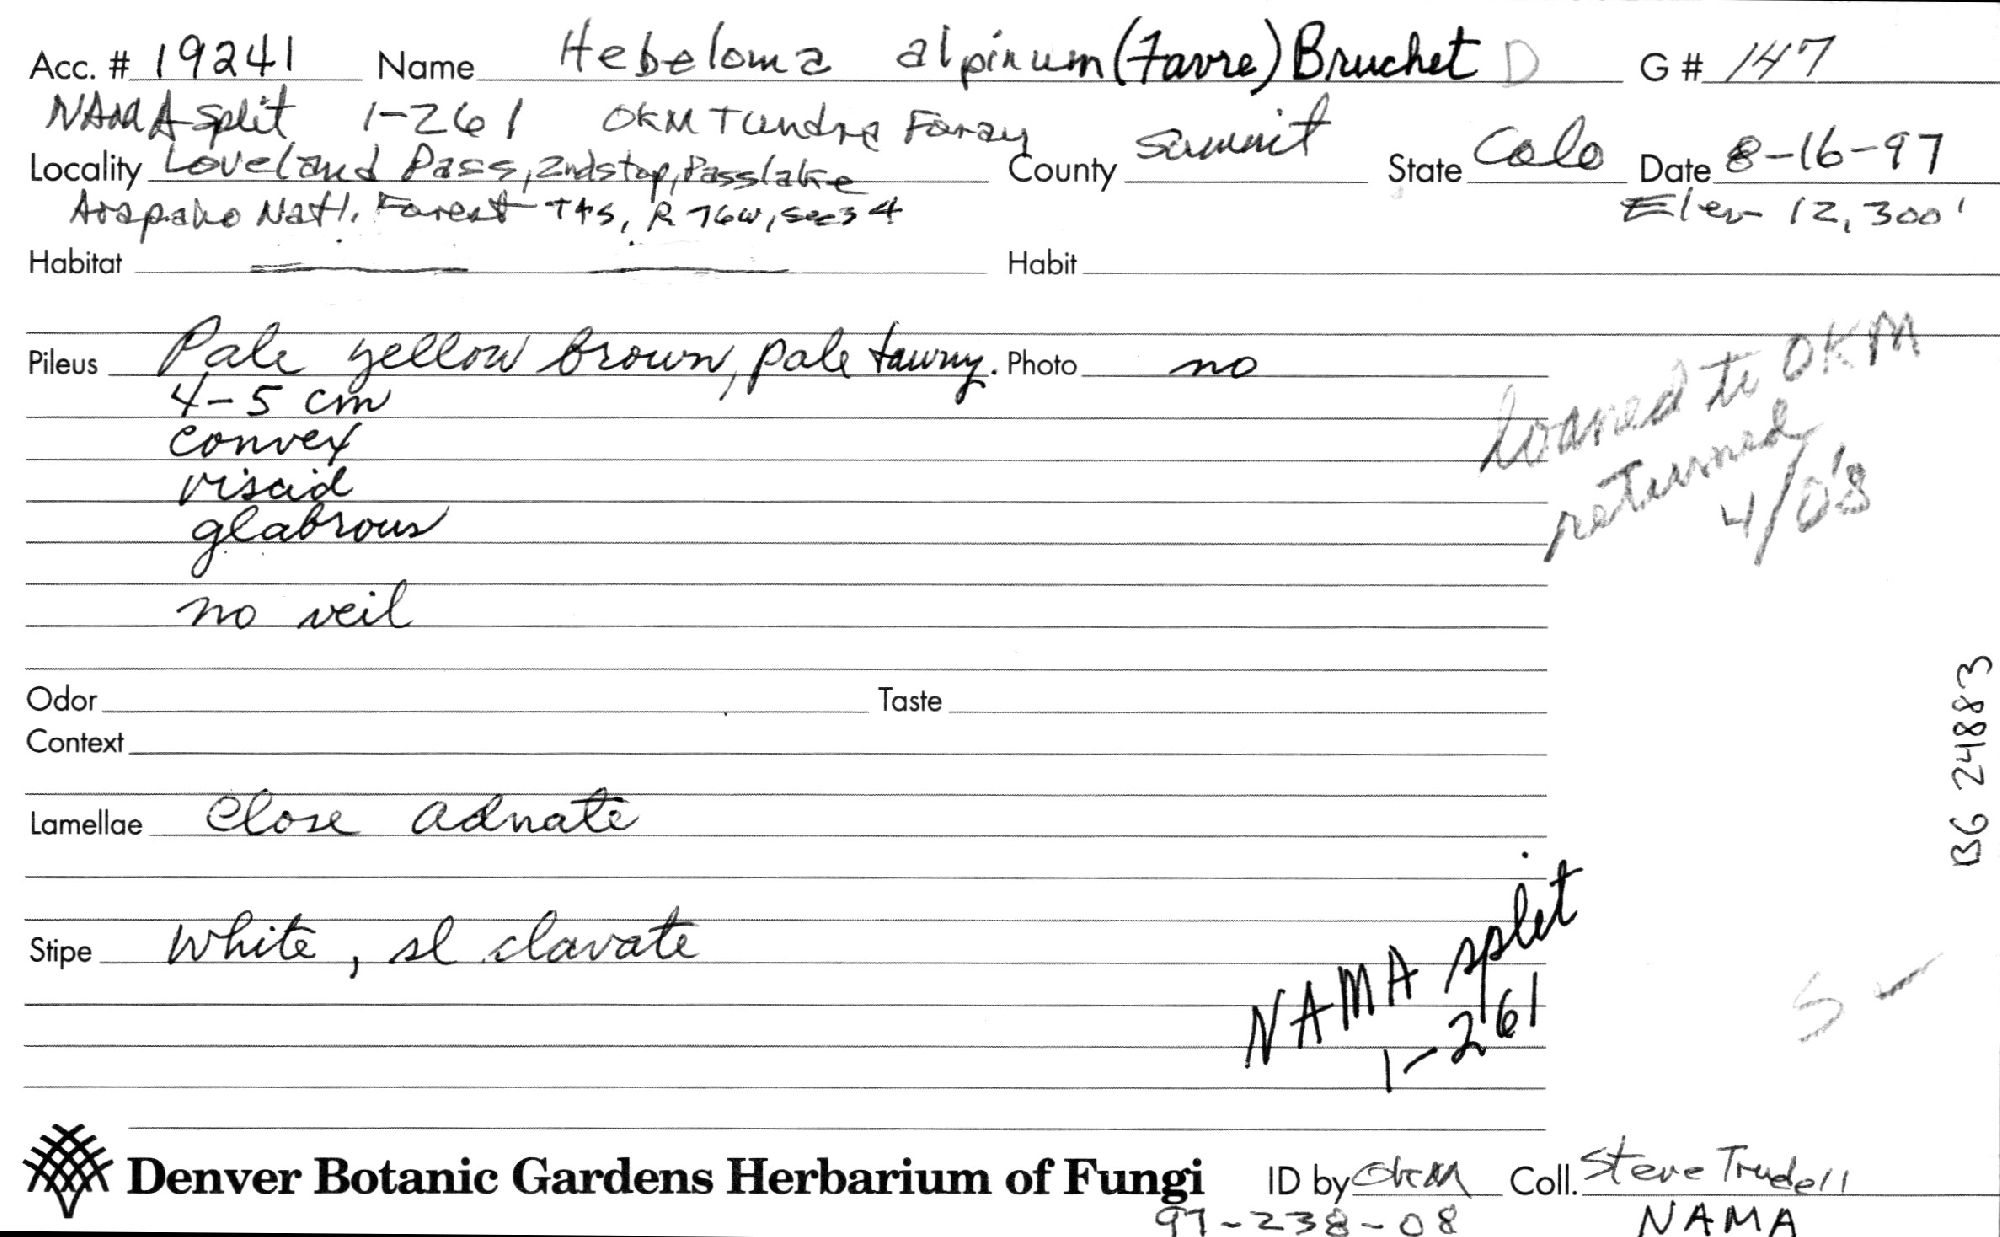 Acc. # 19241 Name Hebeloma alpinum (Favre) Bruchet D G # 147
NAMA split 1-261 OKM Tundra Foray
Locality Loveland Pass, 2nd stop, Pass lake County Summit State Colo Date 8-16-97
Arapaho Natl. Forest T4S, R 76W, Sec 34 Elev 12,300'
Habitat Habit
Pileus Pale yellow brown, pale tawny. Photo no
4-5 cm
convex
viscid
glabrous
no veil
loaned to OKM
returned
4/08
Odor Taste
Context
BG 24883
Lamellae Close adnate
Stipe white, sl clavate
NAMA split
1-261
5
Denver Botanic Gardens Herbarium of Fungi ID by OKM Coll. Steve Trudell
97-238-08 NAMA